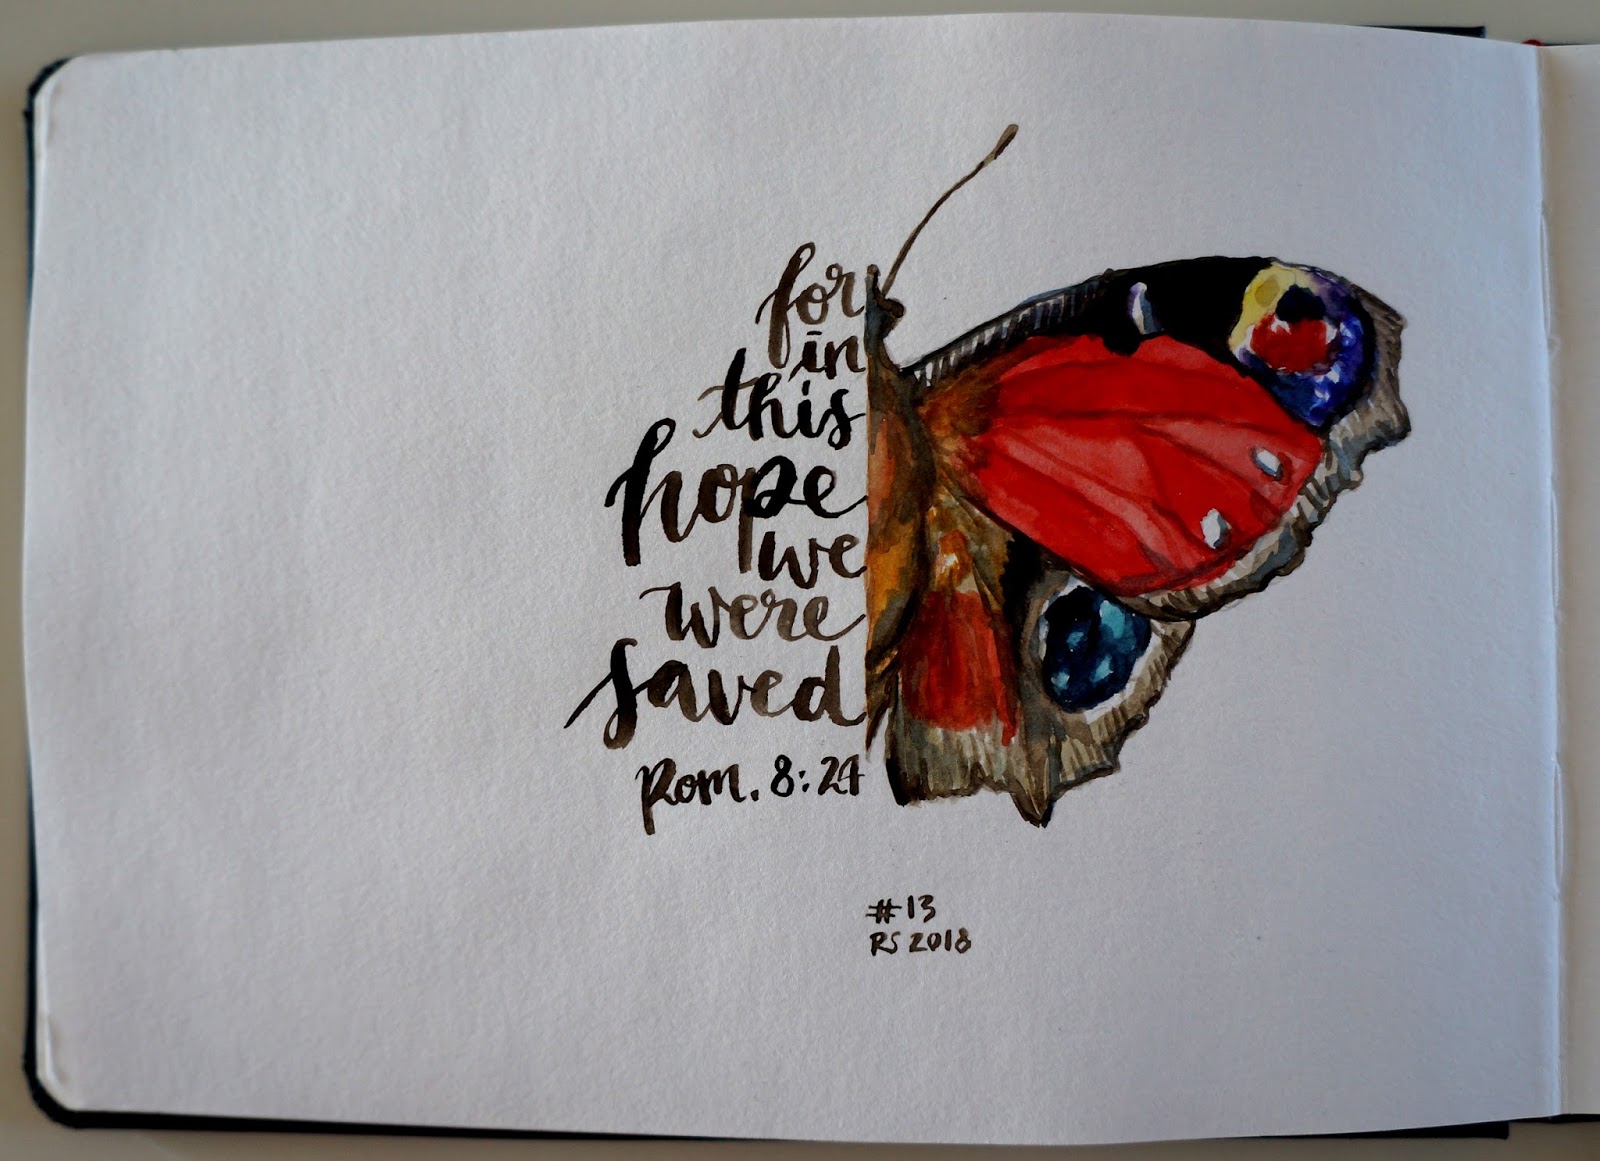 for
in
this
hope
we
were
saved
Rom. 8:24
#13
RS 2018